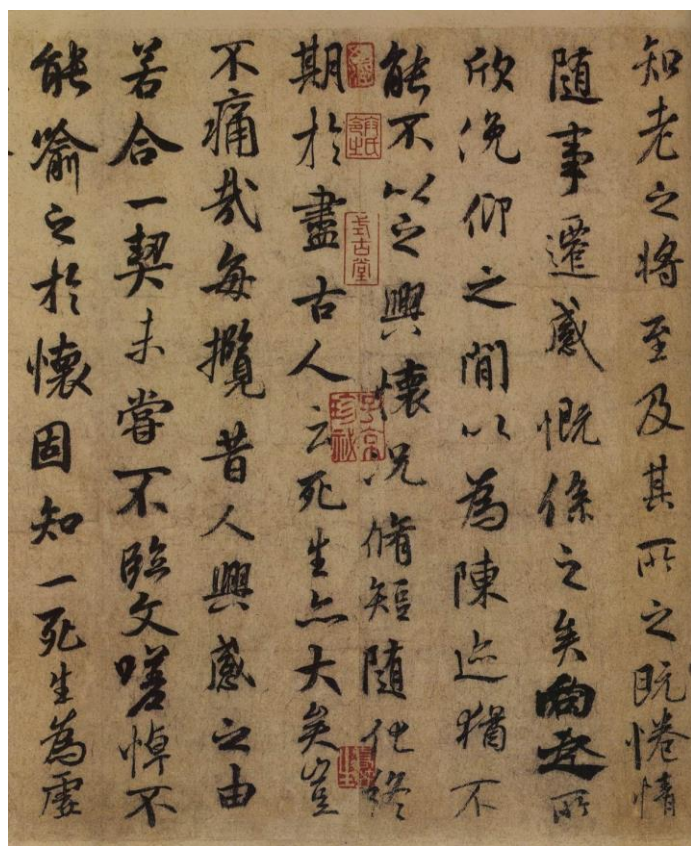 知老之将至及其所之既惓情
随事遷感慨係之矣向之所
欣俛仰之閒以為陳迹猶不
能不以之興懷況脩短随化終
期於盡古人云死生亦大矣豈
不痛哉每攬昔人興感之由
若合一契未嘗不臨文嗟悼不
能喻之於懷固知一死生為虛
式古堂
子京
珍祕